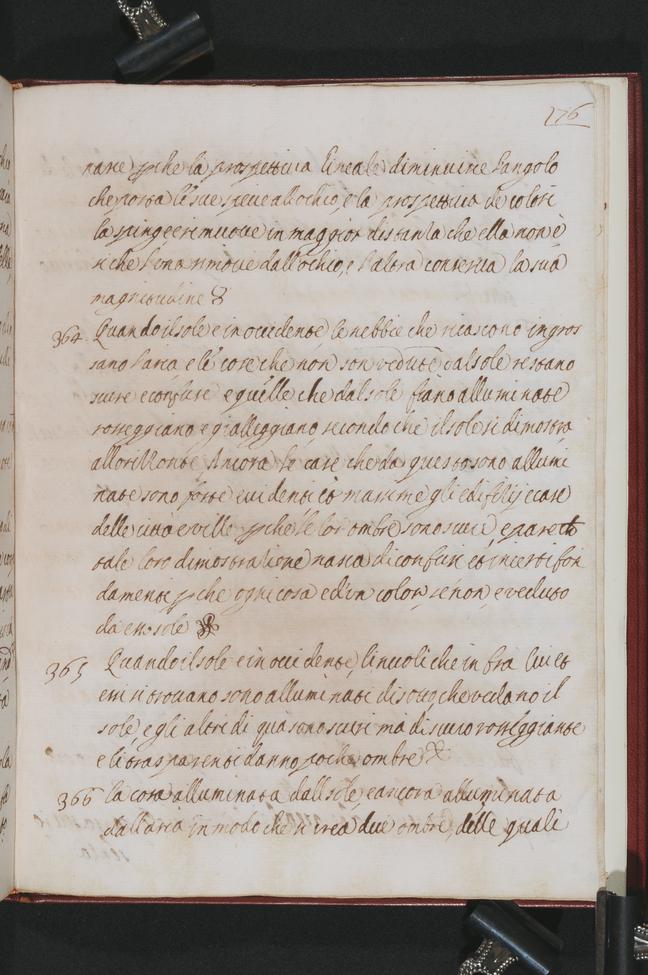 176
nare p̲che la prospettiva lineale diminuire l'angolo
che porta le sue specie all'ochio, e la prospettiva de colori
la spinge e rimuove in maggior distanza che ella non è
si che l'una rimove dall'ochio, e l'altra conserva la sua
magnitudine
364 Quando il sole e in occidente le nebbie che ricascono ingros
sano l'aria e le cose che non son vedute dal sole restano
scure e confuse e quelle che dal sole fiano alluminate
rosseggiano e gialleggiano, secondo che il sole si dimostra
all'orizzonte, Ancora le case che da questo sono allumi
nate sono forte evidenti et massime gli edifitij e case
delle citta e ville p̲che le lor ombre sono scure, e pare ch
tale loro dimostratione nasca di confusi et incerti fon
damenti p̲che ogni cosa ed'un color, se non, e veduto
da esso sole
365 Quando il sole e in occidente, li nuvoli che in fra lui et
essi si trovano sono alluminati di sotto che vedano il
sole, e gli altri di qua sono scuri ma di scuro rosseggiante
e li trasparenti danno poche ombre
366 la cosa alluminata dall sole e ancora alluminata
dall'aria in modo che si crea due ombre, delle quali